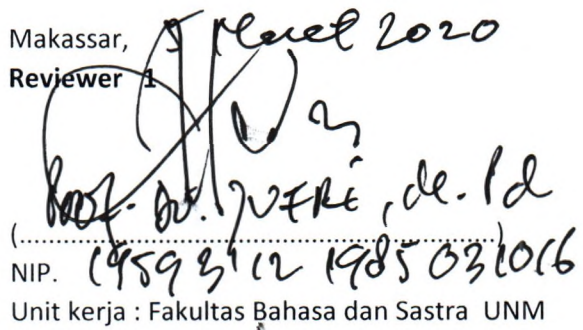 Makassar, 5 Maret 2020
Reviewer 1
Prof. Dr. JUFRI, M. Pd
(........................................................)
NIP. 19593112 198503 1016
Unit kerja : Fakultas Bahasa dan Sastra UNM